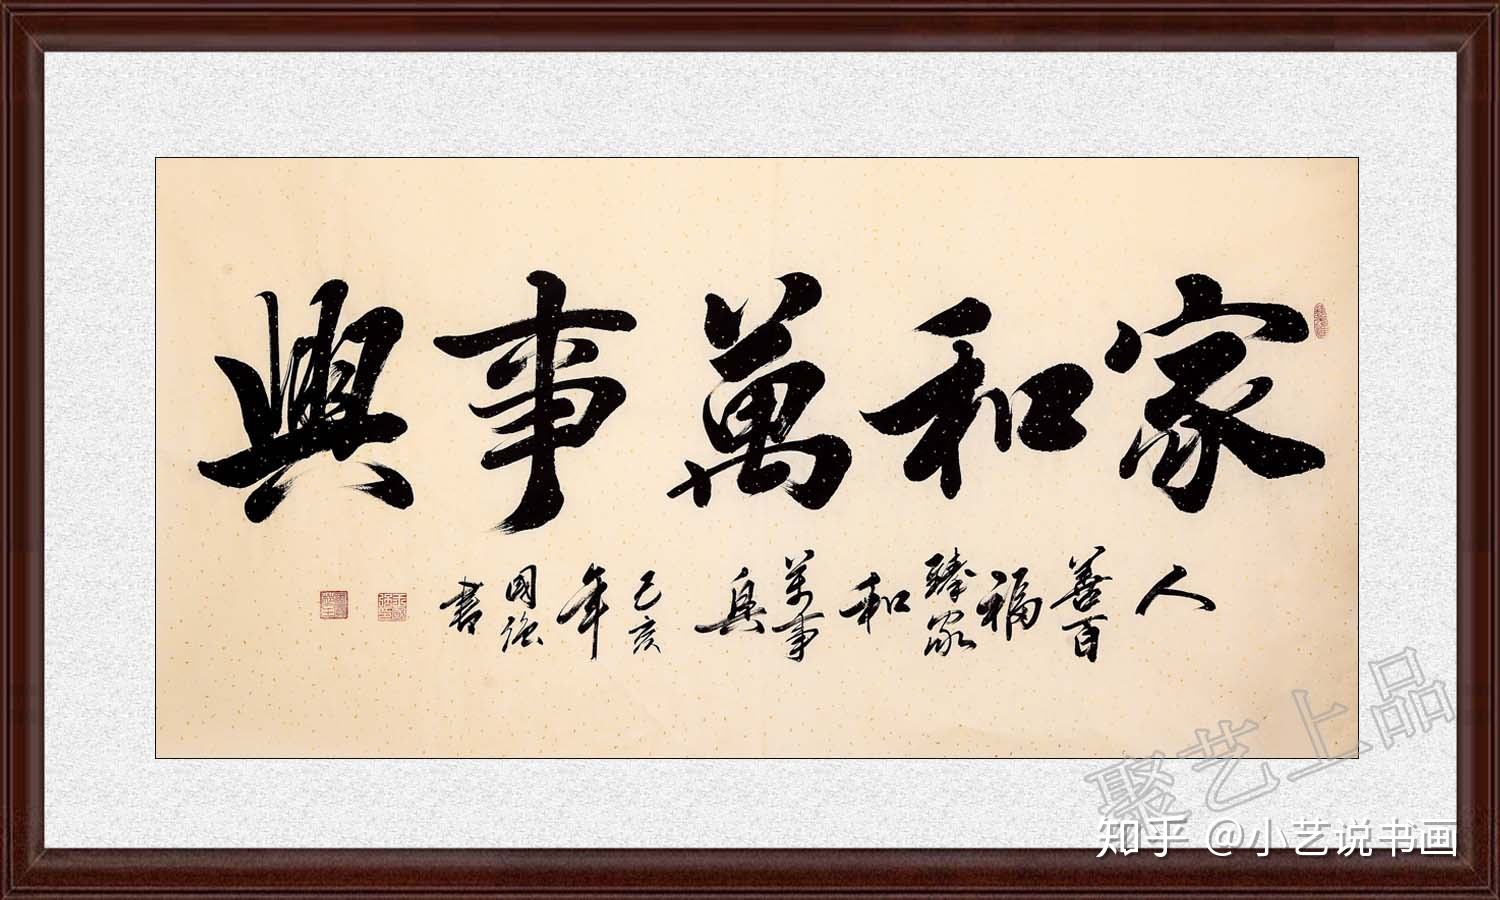 家和萬事興
人善百福臻家和萬事興
己亥年國強書
聚艺上品
知乎 @小艺说书画